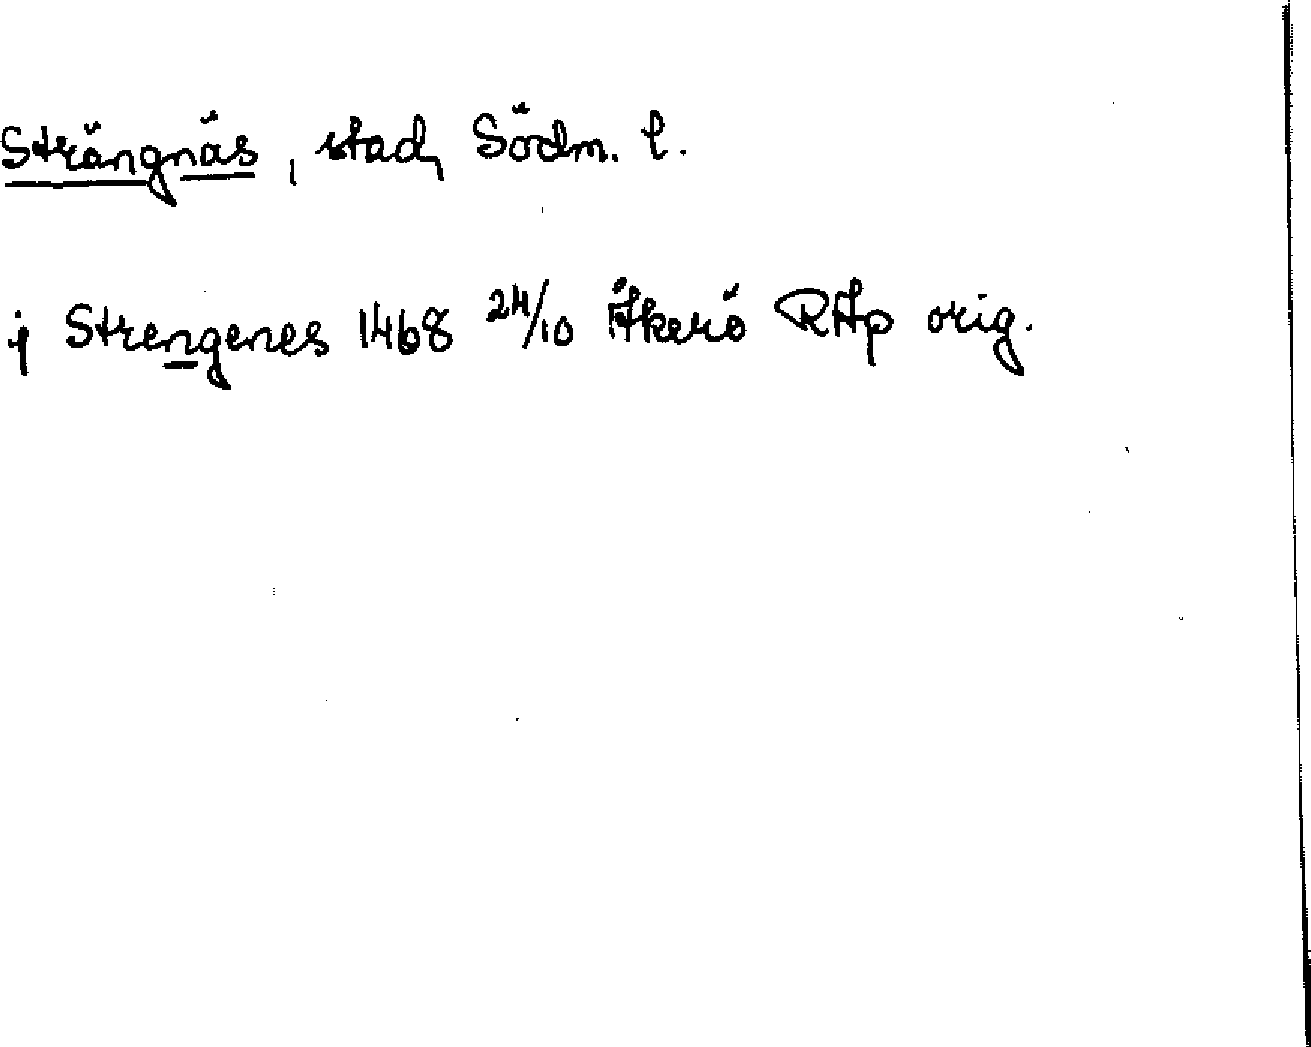 Strängnäs, stad, Södm. l.
j Strengenes 1468 24/10 Åkerö RAp orig.